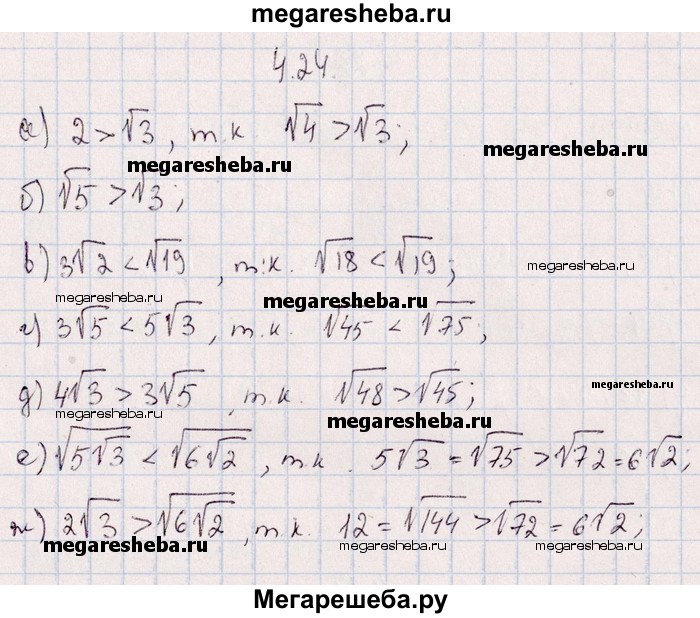 megaresheba.ru
4.24.
а) 2 > √3, т.к √4 > √3;
megaresheba.ru
megaresheba.ru
б) √5 > √3;
в) 3√2 < √19, т.к. √18 < √19;
megaresheba.ru
megaresheba.ru
megaresheba.ru
г) 3√5 < 5√3, т.к. √45 < √75,
д) 4√3 > 3√5, т.к. √48 > √45;
megaresheba.ru
megaresheba.ru
megaresheba.ru
е) √(5√3) < √(6√2), т.к. 5√3 = √75 > √72 = 6√2;
ж) 2√3 > √(6√2), т.к. 12 = √144 > √72 = 6√2;
megaresheba.ru
megaresheba.ru
Мегарешеба.ру